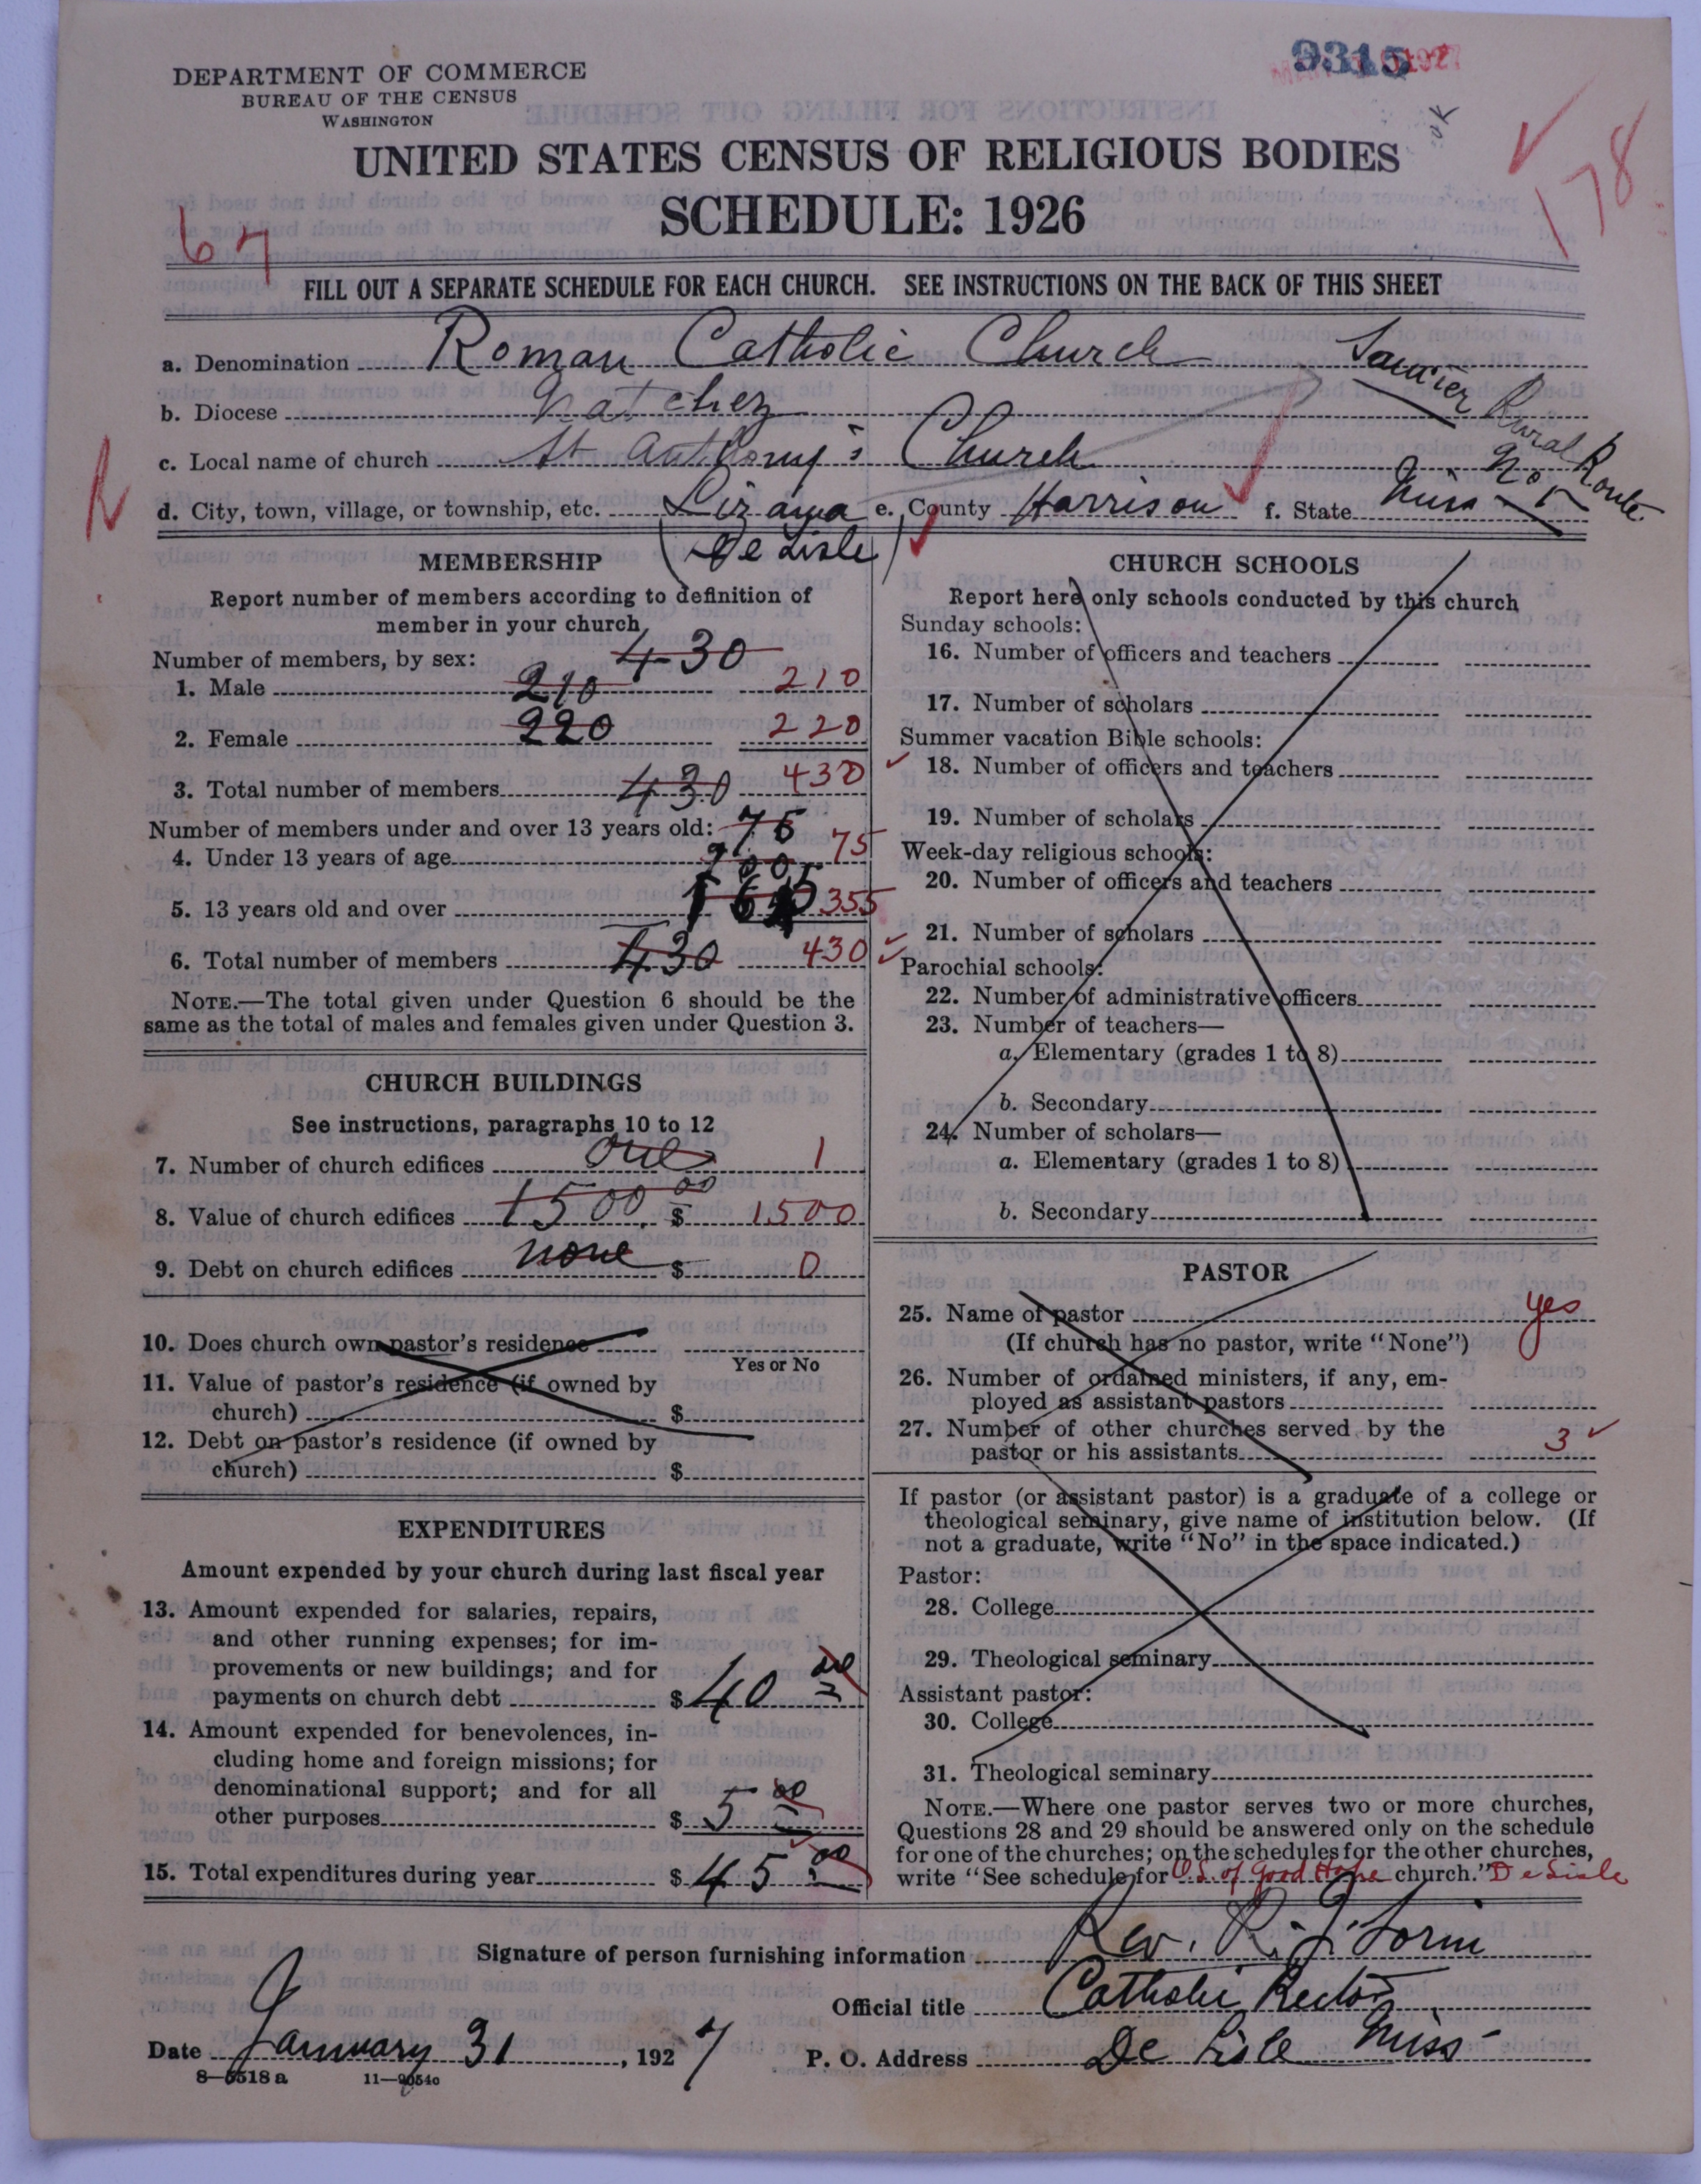 DEPARTMENT OF COMMERCE
BUREAU OF THE CENSUS
WASHINGTON
9315
UNITED STATES CENSUS OF RELIGIOUS BODIES
SCHEDULE: 1926
178
67
FILL OUT A SEPARATE SCHEDULE FOR EACH CHURCH. SEE INSTRUCTIONS ON THE BACK OF THIS SHEET
a. Denomination Roman Catholic Church
Saucier Rural Route
No 1
b. Diocese Natchez
c. Local name of church St Anthony's Church
d. City, town, village, or township, etc. Lizana e. County Harrison f. State Miss
(De Lisle)
MEMBERSHIP
Report number of members according to definition of
member in your church
430
Number of members, by sex:
1. Male 210 210
2. Female 220 220
3. Total number of members 430 430
Number of members under and over 13 years old: 75
4. Under 13 years of age 75
5. 13 years old and over 355
6. Total number of members 430 430
NOTE.—The total given under Question 6 should be the
same as the total of males and females given under Question 3.
CHURCH BUILDINGS
See instructions, paragraphs 10 to 12
7. Number of church edifices one 1
8. Value of church edifices 1500.00 $ 1500
9. Debt on church edifices none $ 0
10. Does church own pastor's residence
Yes or No
11. Value of pastor's residence (if owned by
church) $
12. Debt on pastor's residence (if owned by
church) $
EXPENDITURES
Amount expended by your church during last fiscal year
13. Amount expended for salaries, repairs,
and other running expenses; for im-
provements or new buildings; and for
payments on church debt $ 40 00
14. Amount expended for benevolences, in-
cluding home and foreign missions; for
denominational support; and for all
other purposes $ 5 00
15. Total expenditures during year $ 45 00
CHURCH SCHOOLS
Report here only schools conducted by this church
Sunday schools:
16. Number of officers and teachers
17. Number of scholars
Summer vacation Bible schools:
18. Number of officers and teachers
19. Number of scholars
Week-day religious schools:
20. Number of officers and teachers
21. Number of scholars
Parochial schools:
22. Number of administrative officers
23. Number of teachers—
a. Elementary (grades 1 to 8)
b. Secondary
24. Number of scholars—
a. Elementary (grades 1 to 8)
b. Secondary
PASTOR
25. Name of pastor yes
(If church has no pastor, write "None")
26. Number of ordained ministers, if any, em-
ployed as assistant pastors
27. Number of other churches served by the
pastor or his assistants 3
If pastor (or assistant pastor) is a graduate of a college or
theological seminary, give name of institution below. (If
not a graduate, write "No" in the space indicated.)
Pastor:
28. College
29. Theological seminary
Assistant pastor:
30. College
31. Theological seminary
NOTE.—Where one pastor serves two or more churches,
Questions 28 and 29 should be answered only on the schedule
for one of the churches; on the schedules for the other churches,
write "See schedule for O.L. of Good Hope church." DeLisle
Signature of person furnishing information Rev. R. J. Sorin
Official title Catholic Rector
Date January 31, 1927 P. O. Address De Lisle Miss
8—5518 a